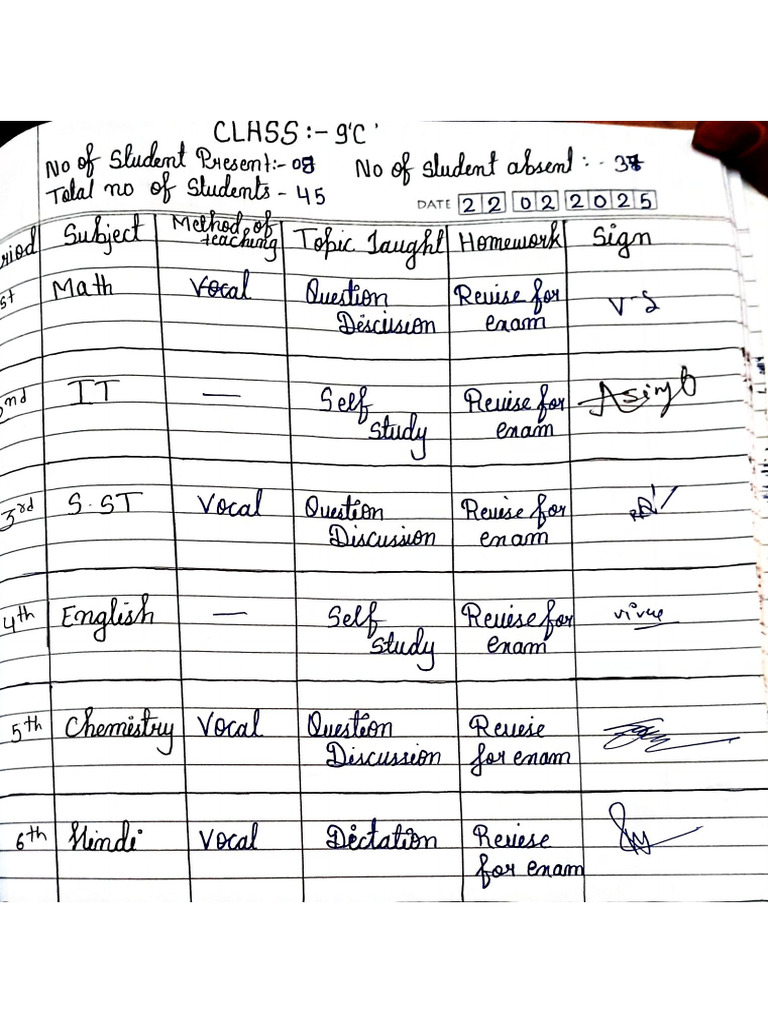 CLASS:- 9'C'
No of Student Present:- 08 No of student absent:- 37
Total no of Students - 45
DATE 22 02 2025
riod Subject Method of teaching Topic Taught Homework Sign
st Math Vocal Question Revise for V-S
Discission exam
2nd IT — Self Revise for Asingh
Study exam
3rd S.ST Vocal Question Revise for
Discussion exam
4th English — Self Revise for
Study exam
5th Chemistry Vocal Question Revise
Discussion for exam
6th Hindi Vocal Dictation Reviese
for exam